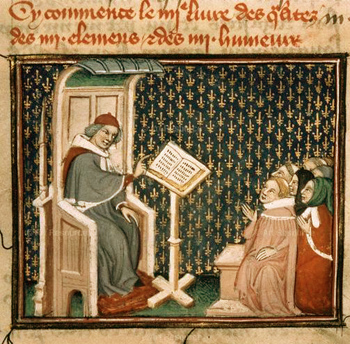 Cy commence le iiii^e liure des q̃litez
des iiii. elemens ⁊ des iiii. humeurs